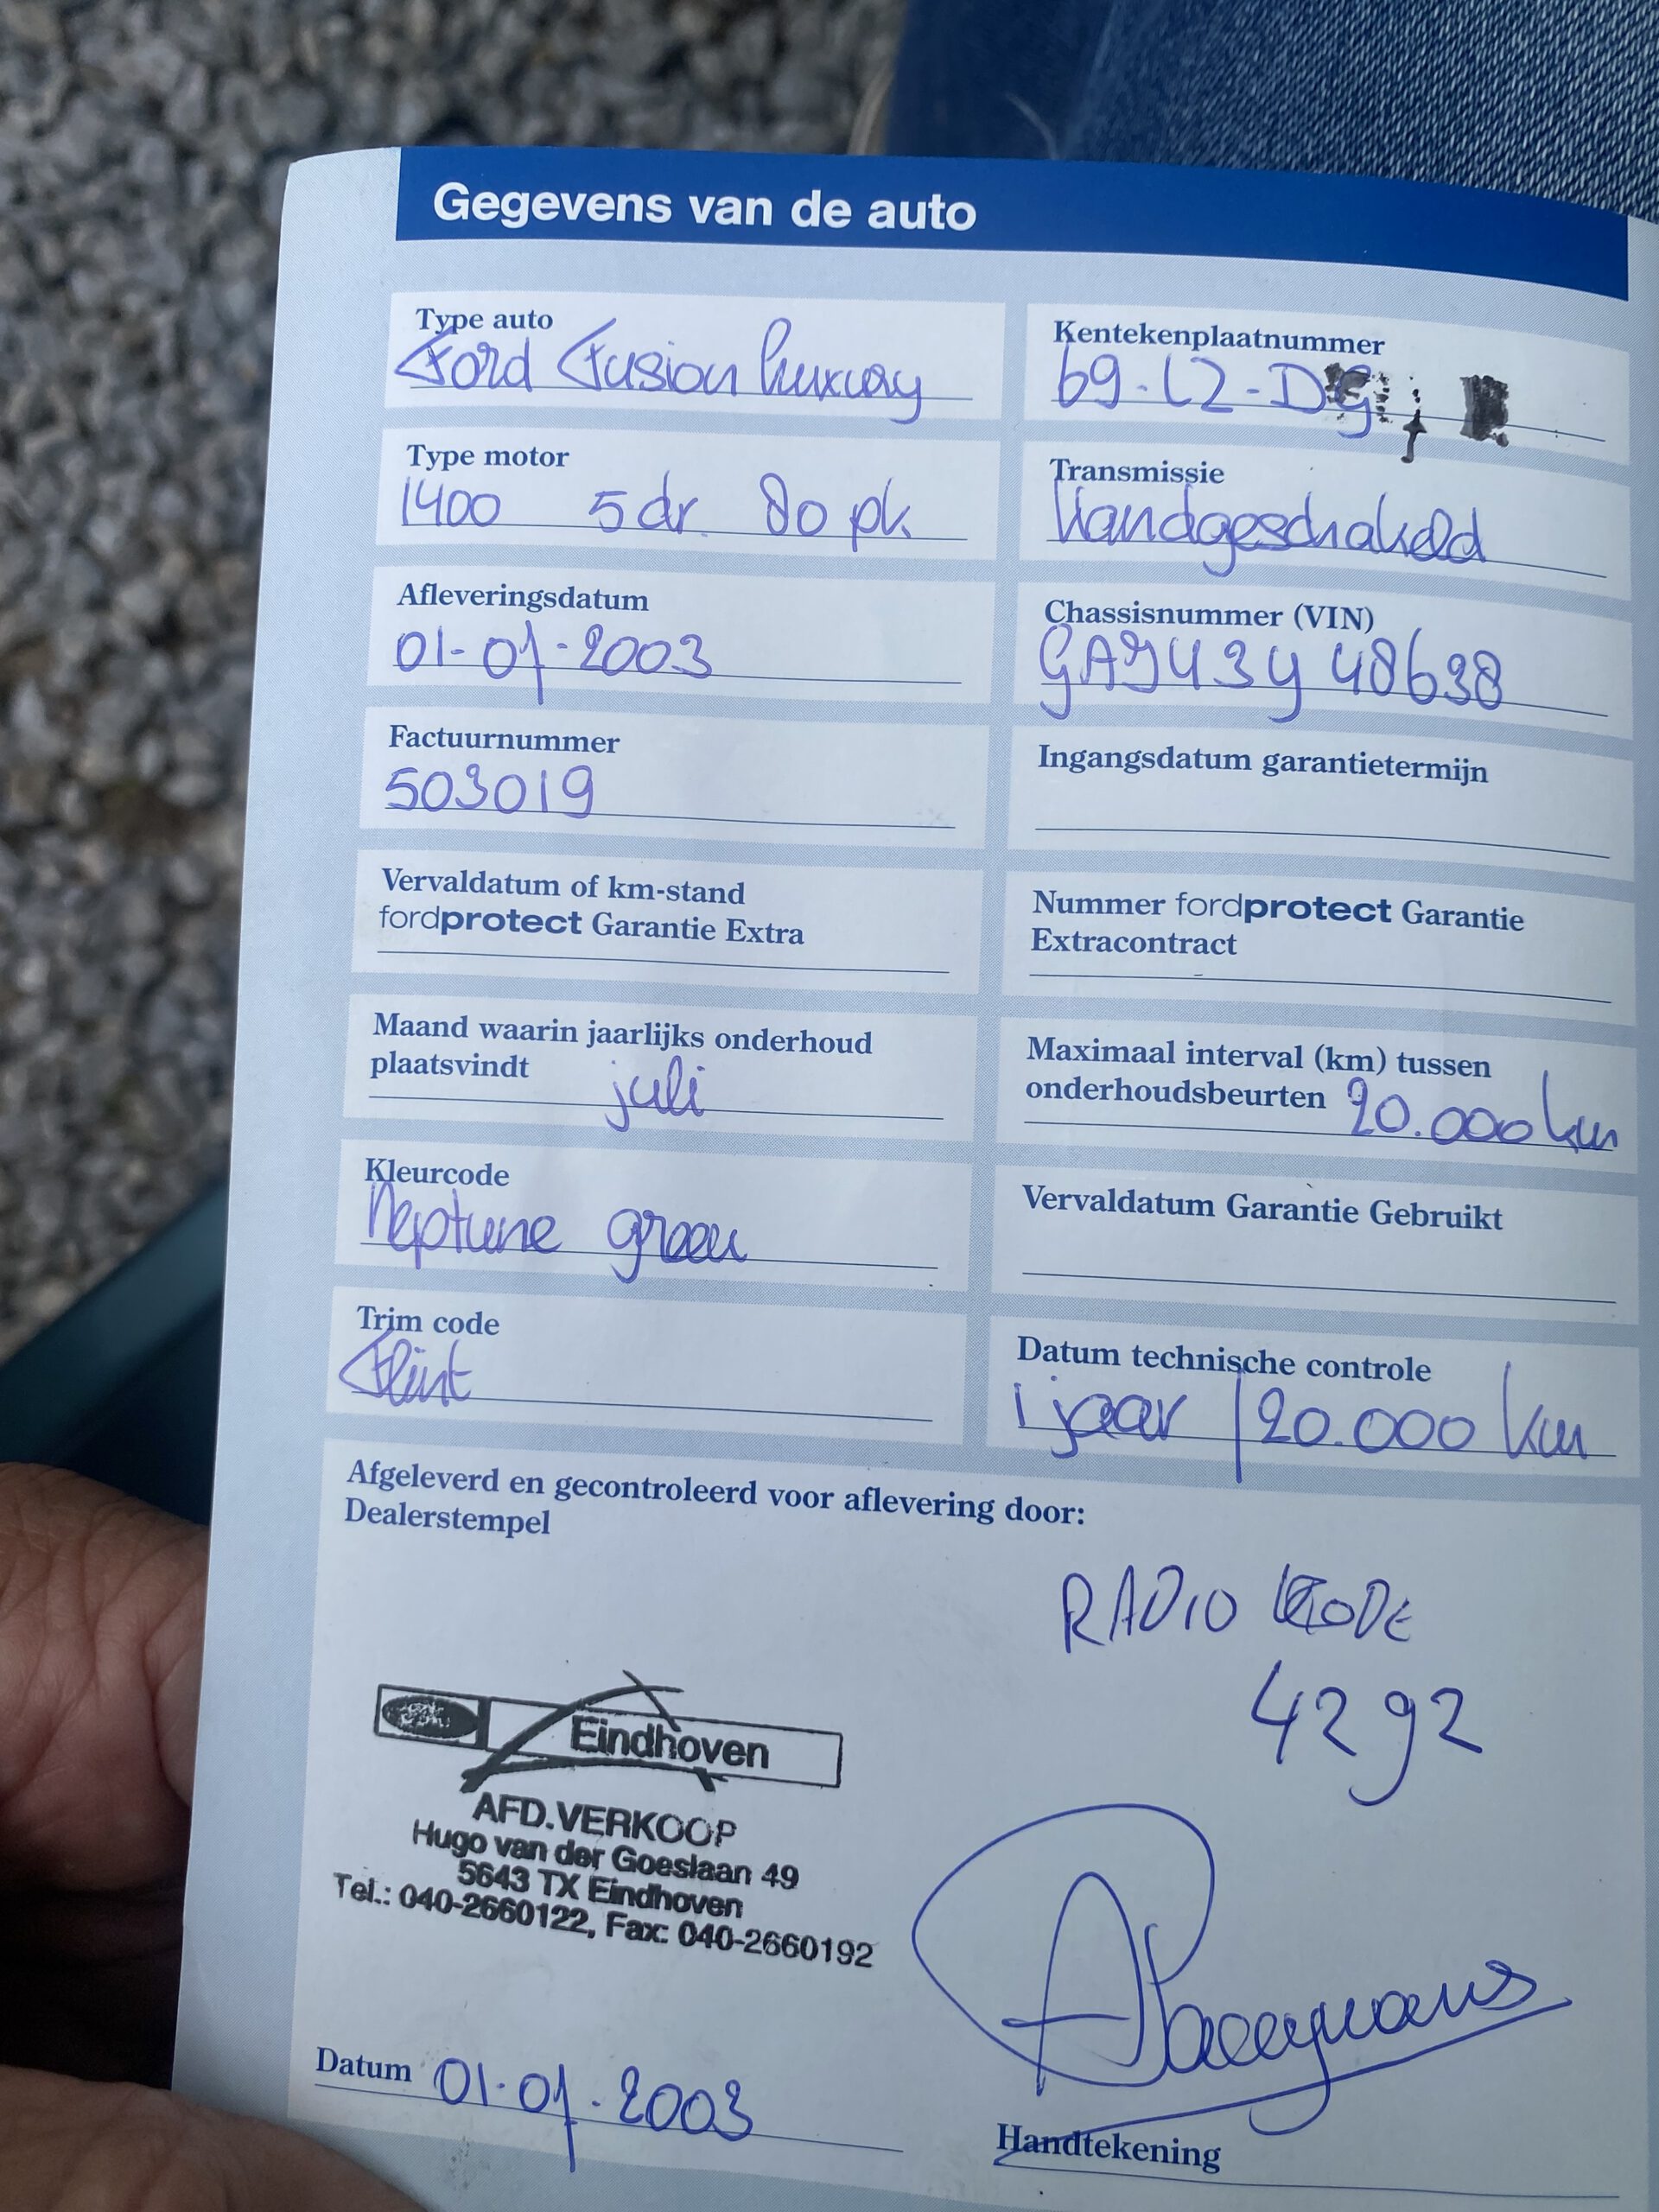 Gegevens van de auto
Type auto
Ford Fusion Luxury
Kentekenplaatnummer
69-LZ-DG
Type motor
1400 5dr. 80 pk.
Transmissie
Handgeschakeld
Afleveringsdatum
01-07-2003
Chassisnummer (VIN)
GAJU3Y48638
Factuurnummer
503019
Ingangsdatum garantietermijn
Vervaldatum of km-stand
fordprotect Garantie Extra
Nummer fordprotect Garantie
Extracontract
Maand waarin jaarlijks onderhoud
plaatsvindt juli
Maximaal interval (km) tussen
onderhoudsbeurten 20.000 km
Kleurcode
Neptune green
Vervaldatum Garantie Gebruikt
Trim code
Flint
Datum technische controle
1 jaar / 20.000 km
Afgeleverd en gecontroleerd voor aflevering door:
Dealerstempel
RADIO KODE
4292
Eindhoven
AFD.VERKOOP
Hugo van der Goeslaan 49
5643 TX Eindhoven
Tel.: 040-2660122, Fax: 040-2660192
Datum 01-07-2003
Handtekening